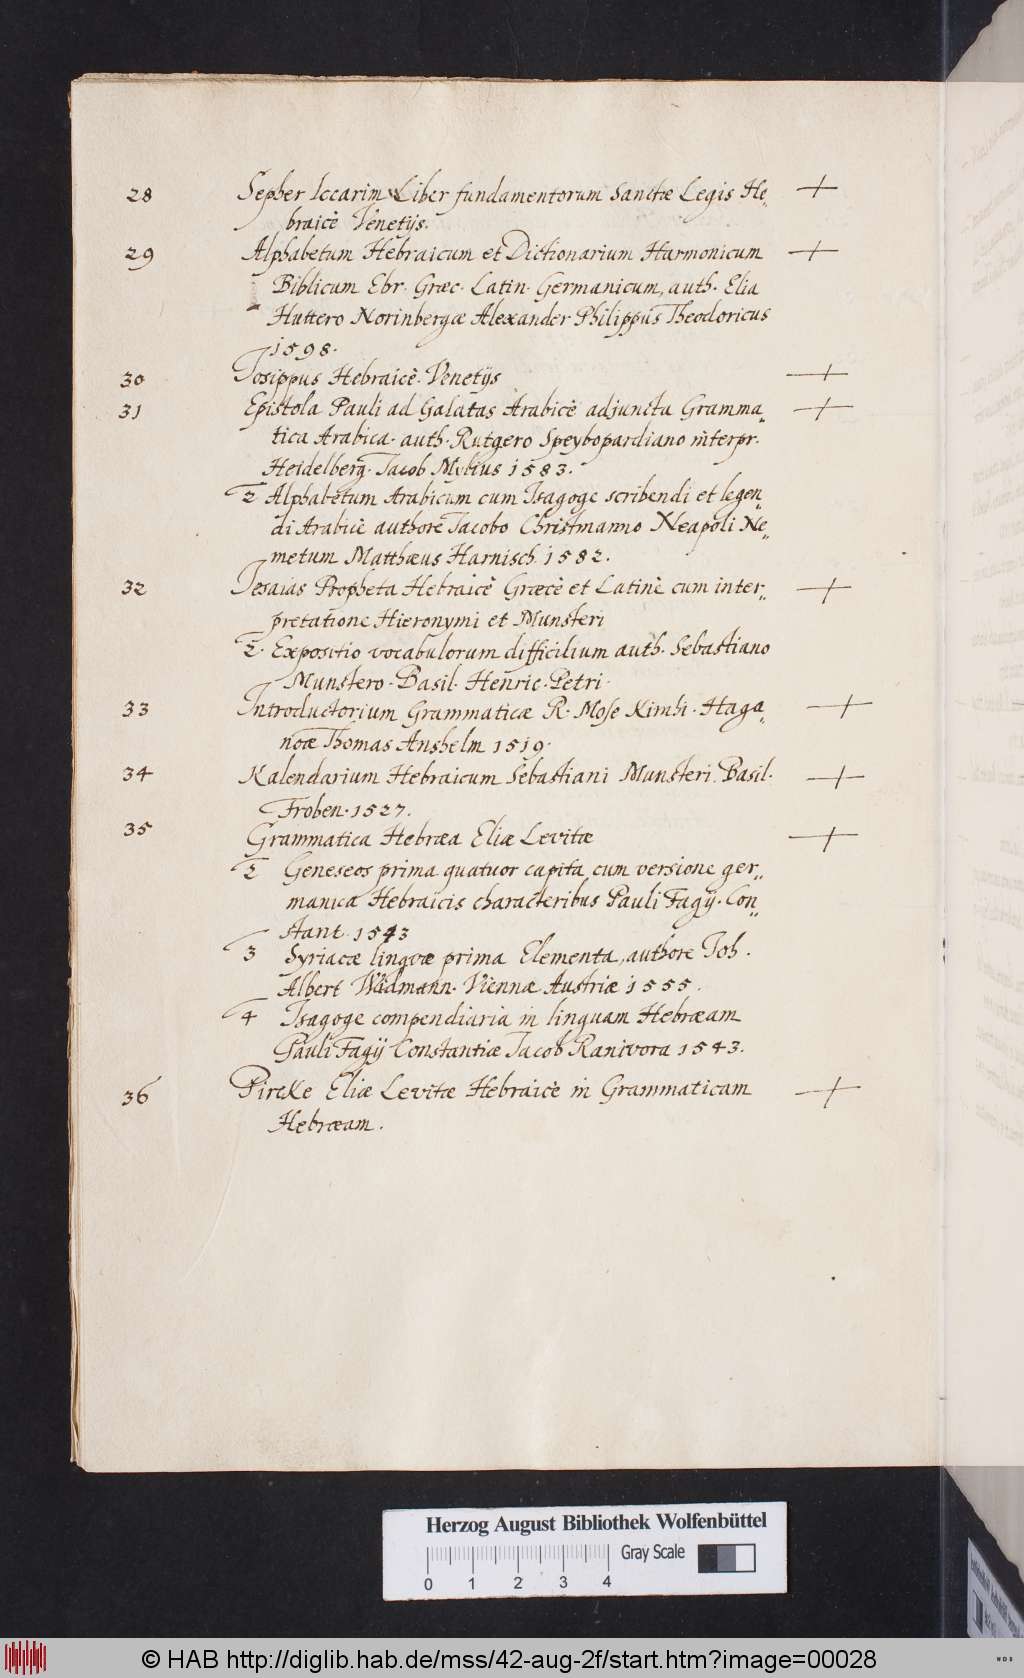 28 Sepher Iccarim Liber fundamentorum Sanctæ Legis He„ +
braicè Venetijs.
29 Alphabetum Hebraicum et Dictionarium Harmonicum +
Biblicum Ebr. Græc. Latin. Germanicum, auth. Elia
Huttero Norinbergæ Alexander Philippus Theodoricus
1598.
30 Josippus Hebraicè. Venetijs +
31 Epistola Pauli ad Galatas Arabicè adjuncta Gramma„ +
tica Arabica. auth. Rutgero Speybopardiano interpr.
Heidelberg. Jacob Mylius 1583.
2 Alphabetum Arabicum cum Isagoge scribendi et legen„
di Arabicè authore Jacobo Christmanno Neapoli Ne„
metum Matthæus Harnisch. 1582.
32 Jesaias Propheta Hebraicè Græcè et Latinè cum inter„ +
pretatione Hieronymi et Munsteri
2. Expositio vocabulorum difficilium auth. Sebastiano
Munstero. Basil. Henric. Petri.
33 Introductorium Grammaticæ R. Mose Kimhi. Haga„ +
noæ Thomas Anshelm 1519.
34 Kalendarium Hebraicum Sebastiani Munsteri. Basil. +
Froben. 1527.
35 Grammatica Hebræa Eliæ Levitæ +
2 Geneseos prima quatuor capita cum versione ger„
manica Hebraicis characteribus Pauli Fagij. Con„
stant. 1543
3 Syriacæ lingvæ prima Elementa, authore Joh.
Albert Widmann. Viennæ Austriæ 1555.
4 Isagoge compendiaria in linguam Hebræam
Pauli Fagij Constantiæ Jacob Ranivora 1543.
36 Pircke Eliæ Levitæ Hebraicè in Grammaticam +
Hebræam.
Herzog August Bibliothek Wolfenbüttel
Gray Scale
0 1 2 3 4
© HAB http://diglib.hab.de/mss/42-aug-2f/start.htm?image=00028